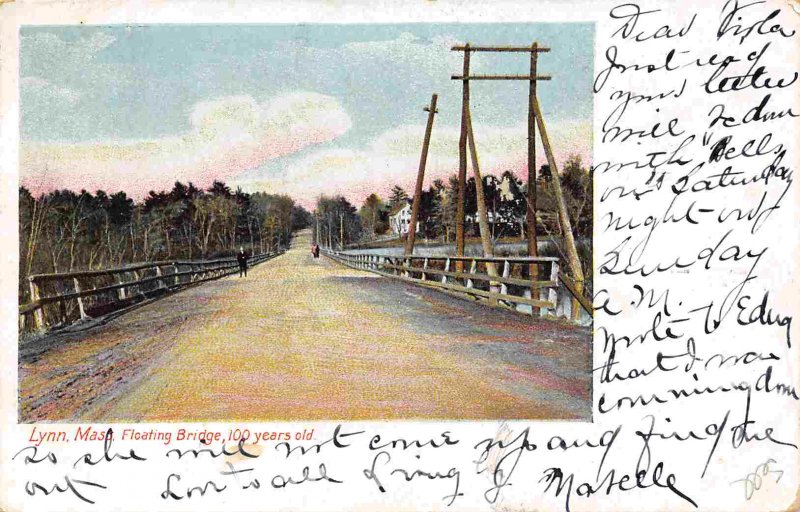 Dear Viola
Just read
your letter
will redum
with "Bells
on" Saturday
night - our
Sunday
A M.
wrote to Edna
that I was
comming down
Lynn, Mass. Floating Bridge, 100 years old.
so she will not come up and find me
out Love to all